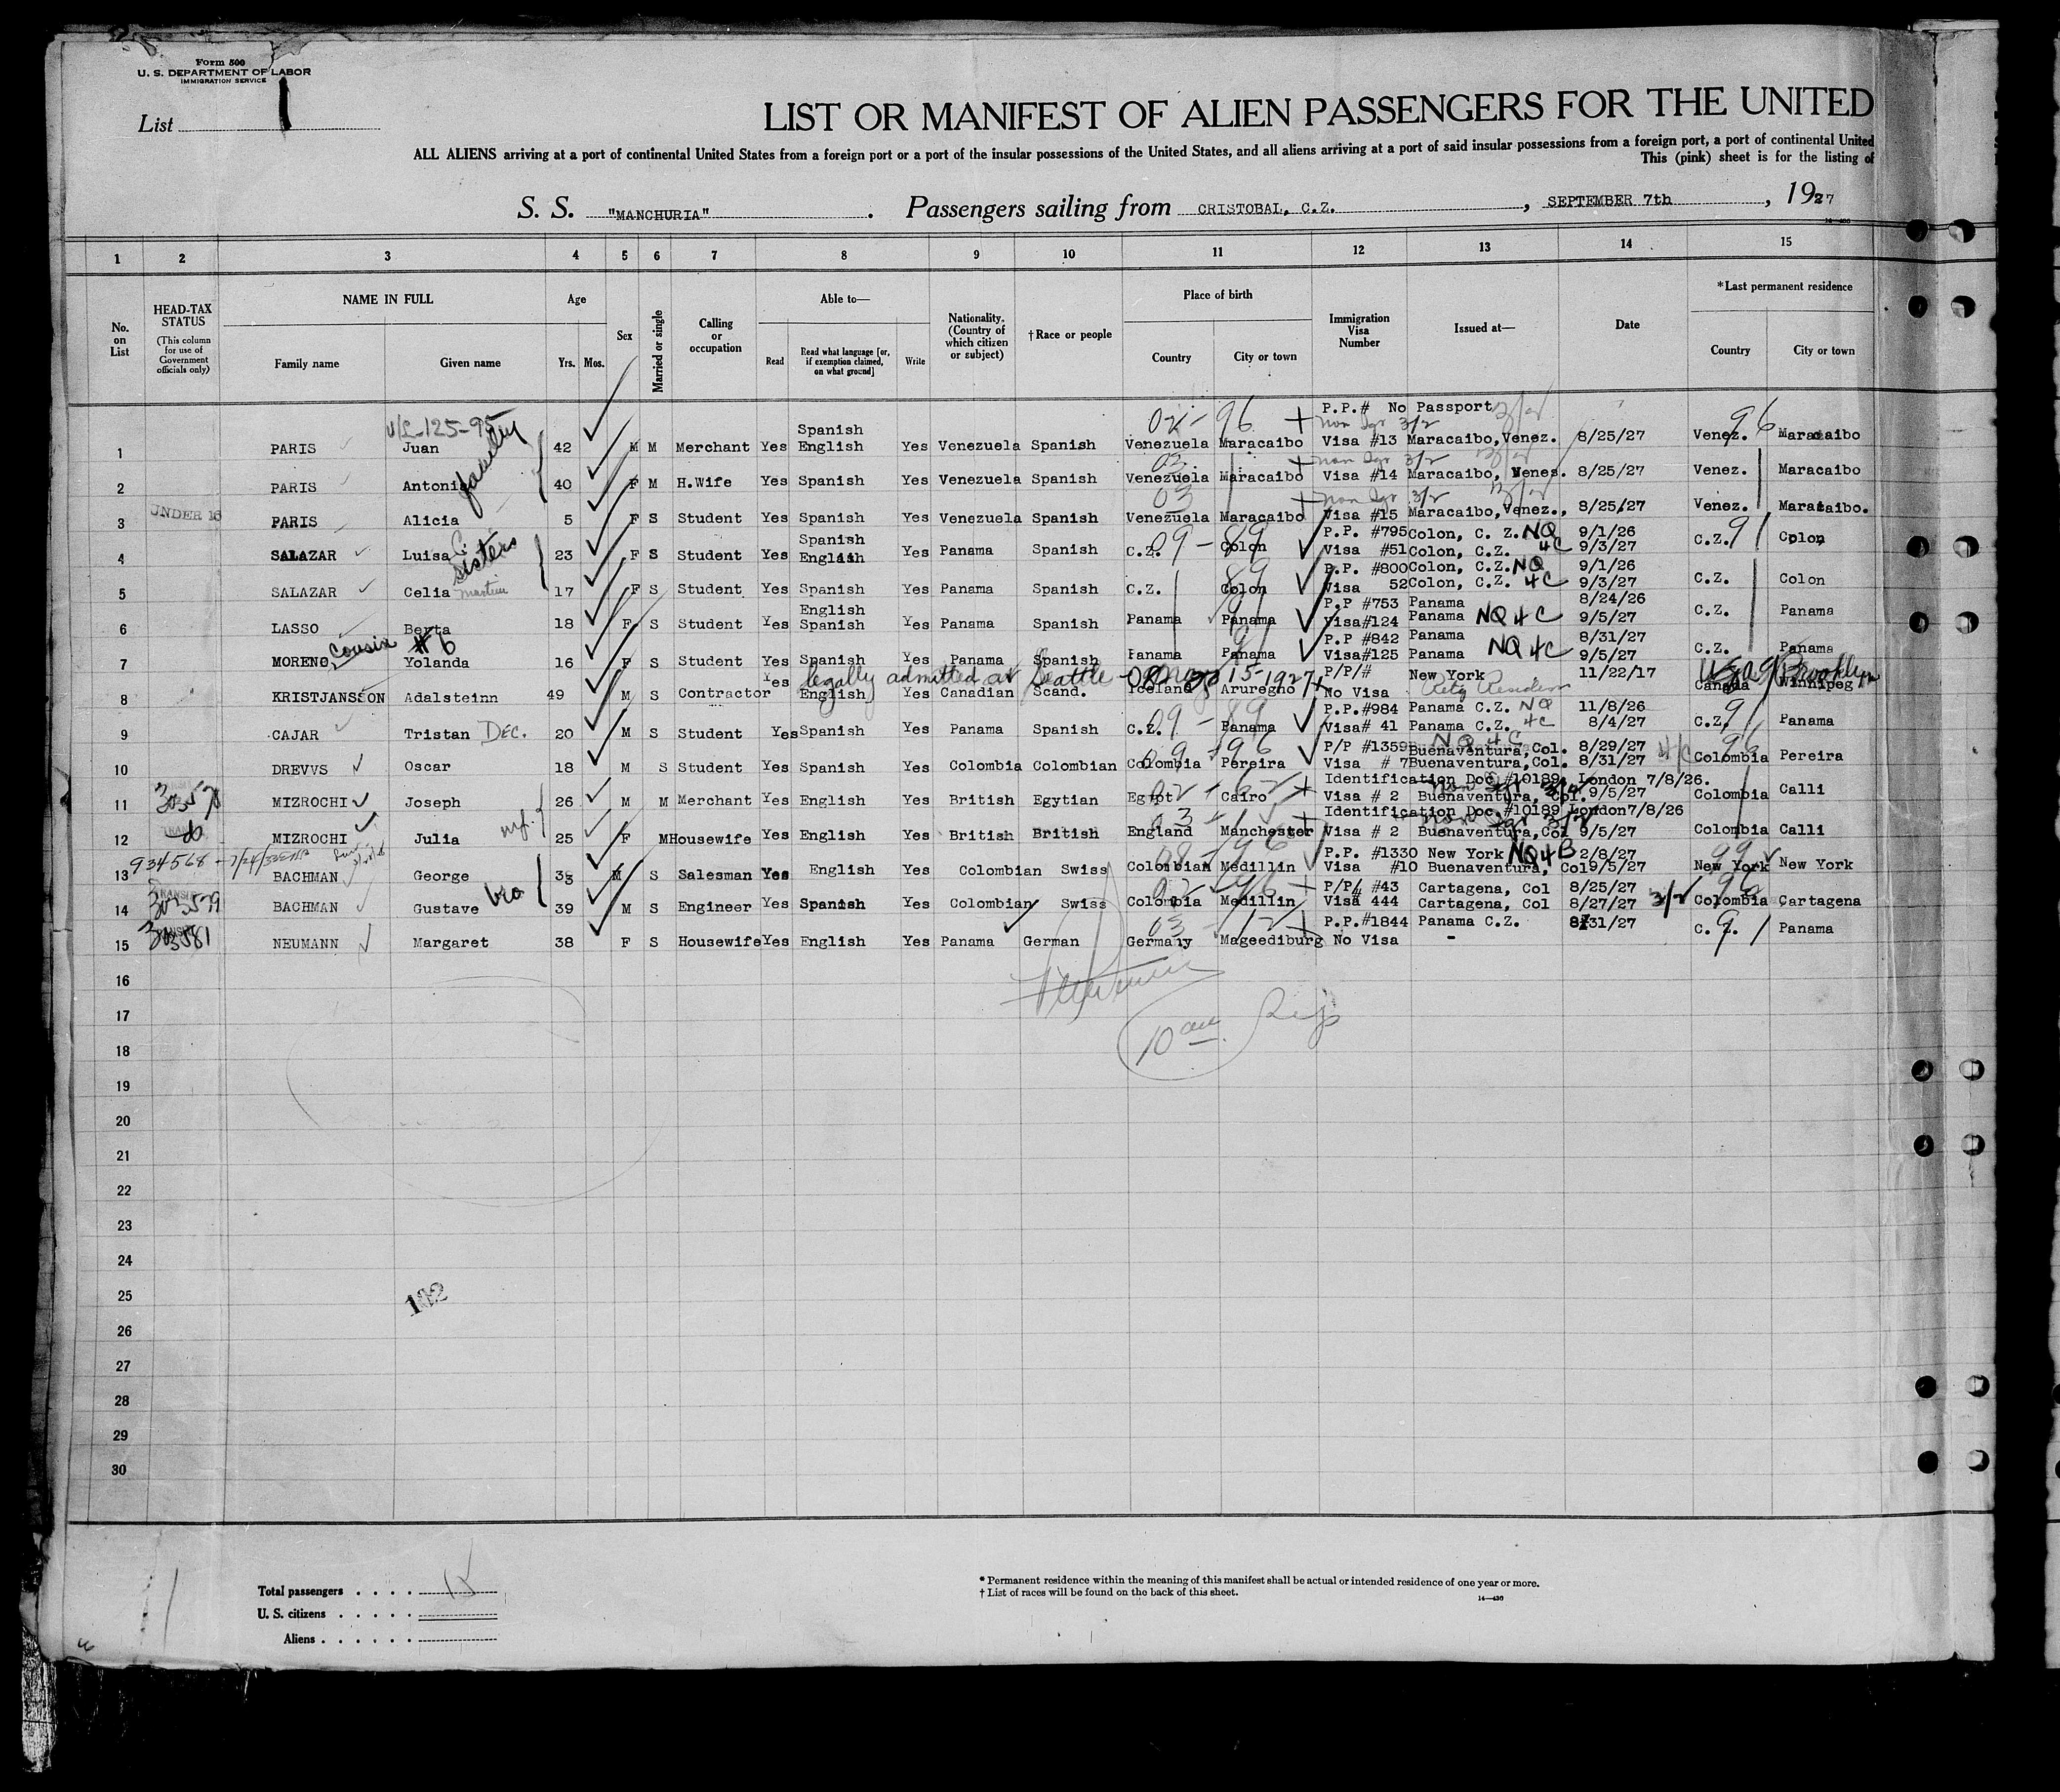 Form 500
U. S. DEPARTMENT OF LABOR
IMMIGRATION SERVICE
List 1
LIST OR MANIFEST OF ALIEN PASSENGERS FOR THE UNITED
ALL ALIENS arriving at a port of continental United States from a foreign port or a port of the insular possessions of the United States, and all aliens arriving at a port of said insular possessions from a foreign port, a port of continental United
This (pink) sheet is for the listing of
S. S. "MANCHURIA". Passengers sailing from CRISTOBAL, C.Z., SEPTEMBER 7th, 1927
1 2 3 4 5 6 7 8 9 10 11 12 13 14 15
No. on List
HEAD-TAX STATUS (This column for use of Government officials only)
NAME IN FULL Family name Given name
Age Yrs. Mos.
Sex
Married or single
Calling or occupation
Able to— Read Read what language [or, if exemption claimed, on what ground] Write
Nationality. (Country of which citizen or subject)
†Race or people
Place of birth Country City or town
Immigration Visa Number
Issued at—
Date
*Last permanent residence Country City or town
V/L-125-95 02-96 P.P.# No Passport 96
1 PARIS Juan family 42 M M Merchant Yes Spanish English Yes Venezuela Spanish Venezuela Maracaibo Visa #13 Maracaibo,Venez. 8/25/27 Venez. Maracaibo
2 PARIS Antonia 40 F M H.Wife Yes Spanish Yes Venezuela Spanish 03 Venezuela Maracaibo Visa #14 Maracaibo, Venes. 8/25/27 Venez. Maracaibo
3 UNDER 16 PARIS Alicia 5 F S Student Yes Spanish Yes Venezuela Spanish 03 Venezuela Maracaibo Visa #15 Maracaibo,Venez., 8/25/27 Venez. Maracaibo.
4 SALAZAR Luisa C. sisters 23 F S Student Yes Spanish English Yes Panama Spanish C.Z. 09-89 Colon P.P. #795 Colon, C. Z. NQ 9/1/26 Visa #51 Colon, C.Z. 4C 9/3/27 C.Z. 91 Colon
5 SALAZAR Celia 17 F S Student Yes Spanish Yes Panama Spanish C.Z. 89 Colon P.P. #800 Colon, C.Z. NQ 9/1/26 Visa 52 Colon, C.Z. 4C 9/3/27 C.Z. Colon
6 LASSO Berta 18 F S Student Yes English Spanish Yes Panama Spanish Panama 91 Panama P.P #753 Panama 8/24/26 Visa#124 Panama NQ 4C 9/5/27 C.Z. Panama
7 MORENO, cousin #6 Yolanda 16 F S Student Yes Spanish Yes Panama Spanish Panama 91 Panama P.P #842 Panama 8/31/27 Visa#125 Panama NQ 4C 9/5/27 C.Z. Panama
legally admitted at Seattle 15-1927
8 KRISTJANSSON Adalsteinn 49 M S Contractor Yes English Yes Canadian Scand. Iceland Aruregno P/P/# New York 11/22/17 No Visa Canada Winnipeg Brooklyn
9 CAJAR Tristan DEC. 20 M S Student Yes Spanish Yes Panama Spanish C.Z. 09-89 Panama P.P.#984 Panama C.Z. NQ 11/8/26 Visa# 41 Panama C.Z. 4C 8/4/27 C.Z. 91 Panama
10 DREVVS Oscar 18 M S Student Yes Spanish Yes Colombia Colombian Colombia 09-96 Pereira P/P #1359 NQ 4C Buenaventura,Col. 8/29/27 Visa # 7 Buenaventura,Col. 8/31/27 4/C Colombia 96 Pereira
11 MIZROCHI Joseph 26 M M Merchant Yes English Yes British Egytian Egypt 02-62 Cairo Identification Doc.#10189 London 7/8/26. Visa # 2 Buenaventura, Col. 9/5/27 Colombia Calli
12 MIZROCHI Julia 25 F M Housewife Yes English Yes British British England Manchester Identification Doc.#10189 London 7/8/26 Visa # 2 Buenaventura,Col 9/5/27 Colombia Calli
934568
13 BACHMAN George bro M S Salesman Yes English Yes Colombian Swiss Colombian Medillin P.P. #1330 New York NQ4B 2/8/27 Visa #10 Buenaventura, Col 9/5/27 New York 99 New York
14 BACHMAN Gustave 39 M S Engineer Yes Spanish Yes Colombian Swiss Colombia Medillin P/P/ #43 Cartagena, Col 8/25/27 Visa 444 Cartagena, Col 8/27/27 3/2 Colombia 96 Cartagena
15 NEUMANN Margaret 38 F S Housewife Yes English Yes Panama German Germany Mageediburg P.P.#1844 Panama C.Z. 8/31/27 No Visa - C. Z. Panama
16
17 10
18
19
20
21
22
23
24
25 132
26
27
28
29
30
Total passengers . . . . 15
U. S. citizens . . . . .
Aliens . . . . . .
* Permanent residence within the meaning of this manifest shall be actual or intended residence of one year or more.
† List of races will be found on the back of this sheet.